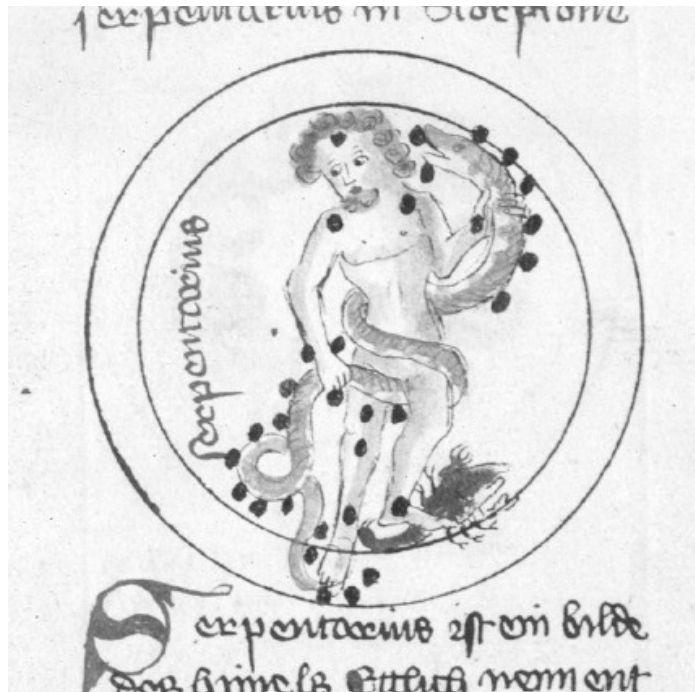 serpentarius in Scorpione
serpentarius
Serpentarius ist ein bilde
des himels Ettlich nennent